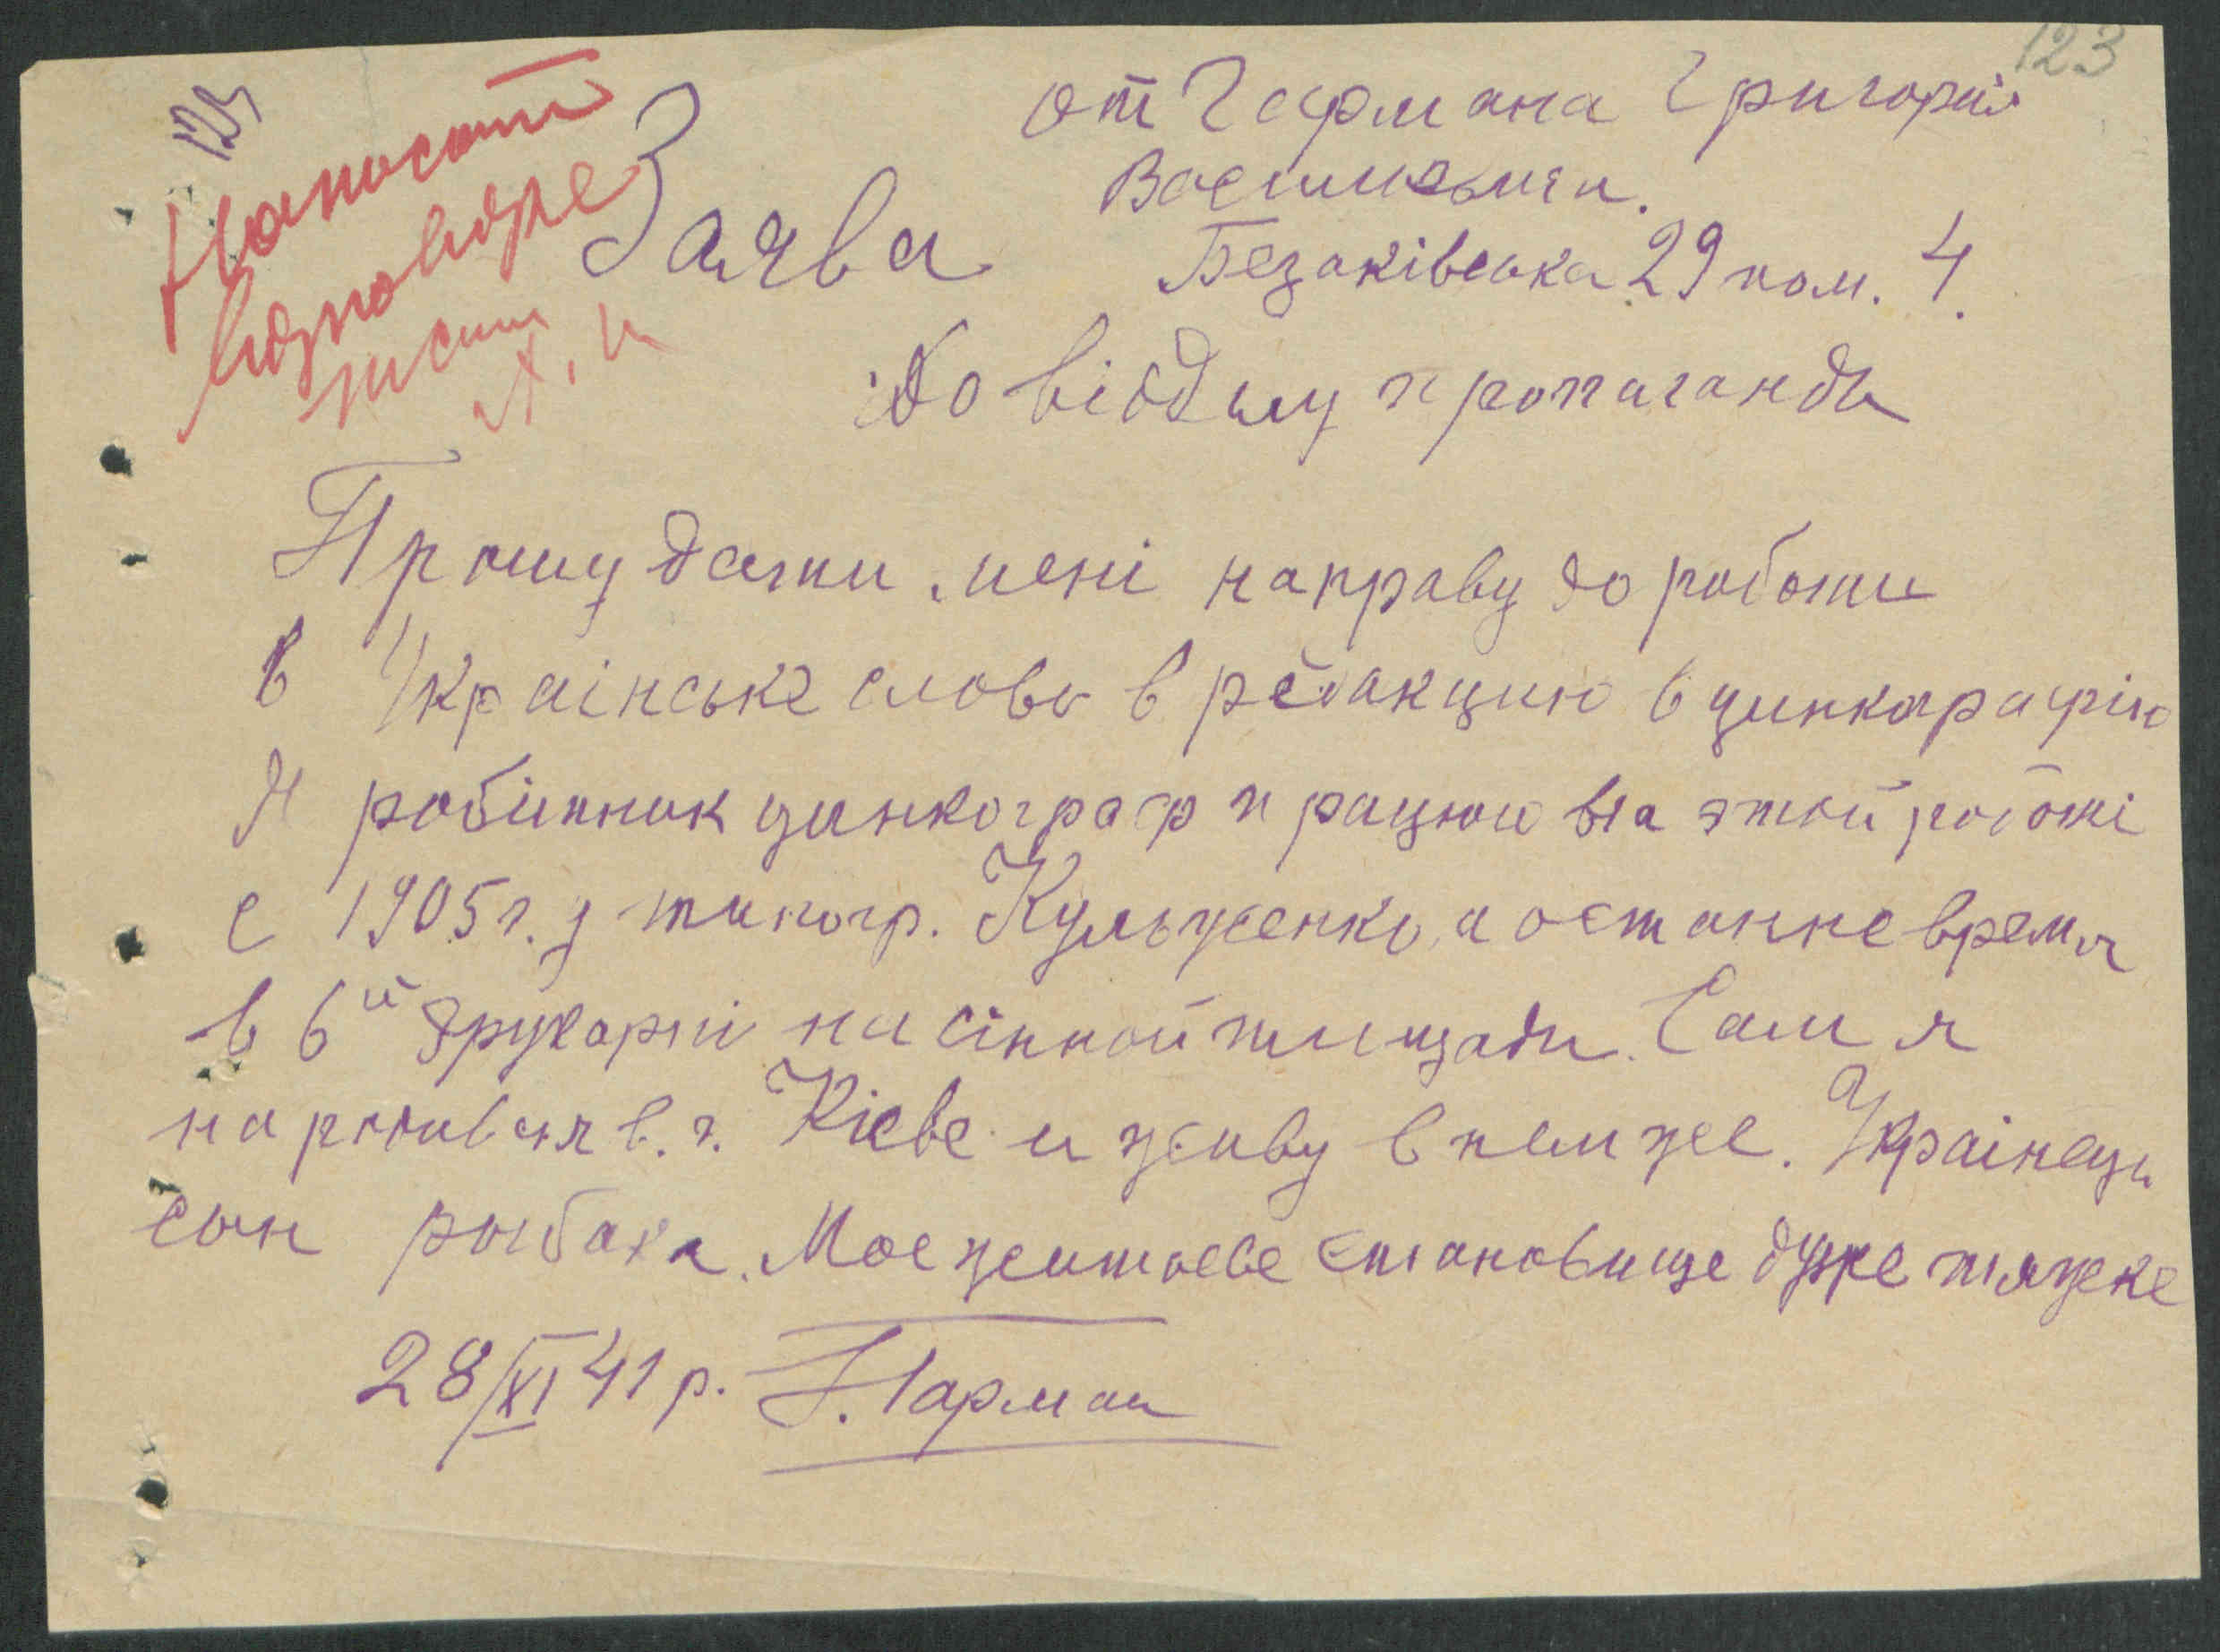 123
от Гармана Григорія
Васильича.
Безаківська 29 пом. 4.
Заява
До відділу пропаганди
Прошу дати мені направу до роботи
в Українське слово в редакцию в цинкографію
Я робітник цинкограф працюю на этой роботі
с 1905 г. у типогр. Кульженко, а останне время
в 6й друкарні на сінной площади. Сам я
народився в. г. Кіеве и живу в нем же. Украінець
сын рыбака. Мое житлове становище дуже тяжке
28/XI 41 р. Г. Гарман